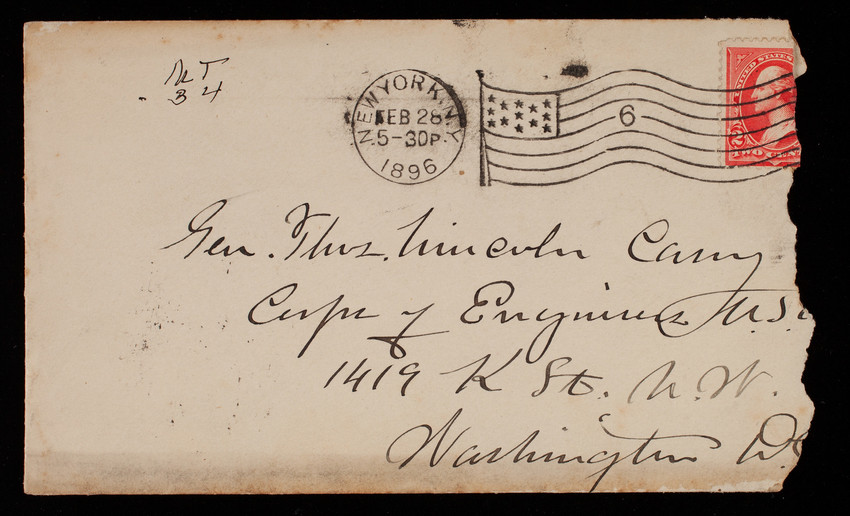 34
NEW YORK, N.Y.
FEB 28
5-30P
1896
6
UNITED STATES
2
TWO CEN
Gen. Thos. Lincoln Casey
Corps of Engineers U.S.
1419 K St. N.W.
Washington D.C